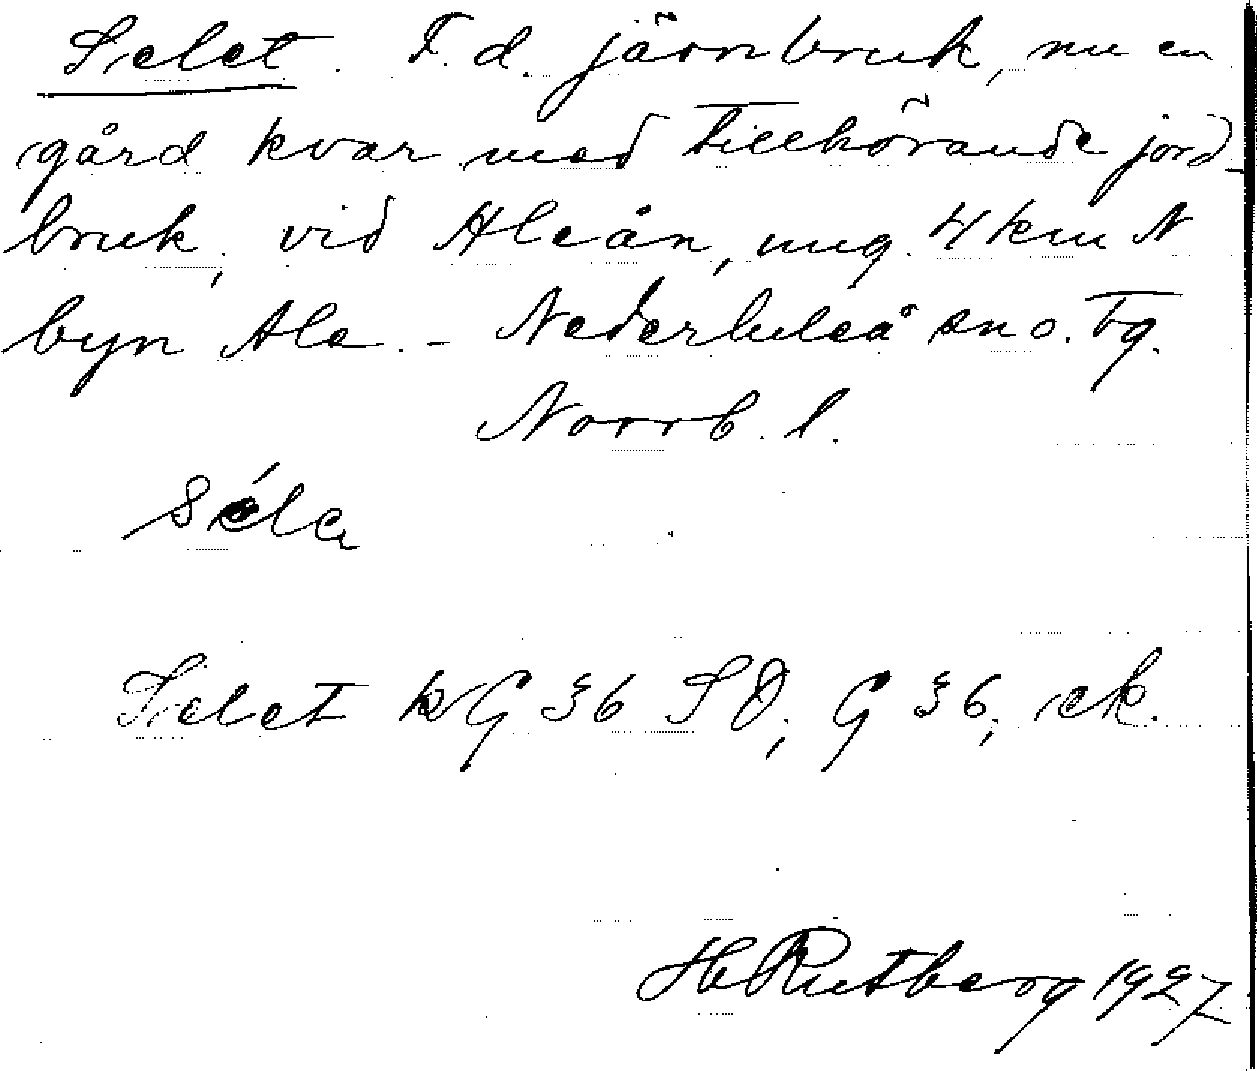 Selet. F. d. järnbruk, nu en
gård kvar med tillhörande jord-
bruk, vid Aleån, ung. 4 km N
byn Ale. - Nederluleå sn o. tg.
Norrb. l.
séla
Selet kG 36 SO; G 36; ek.
H Rutberg 1927